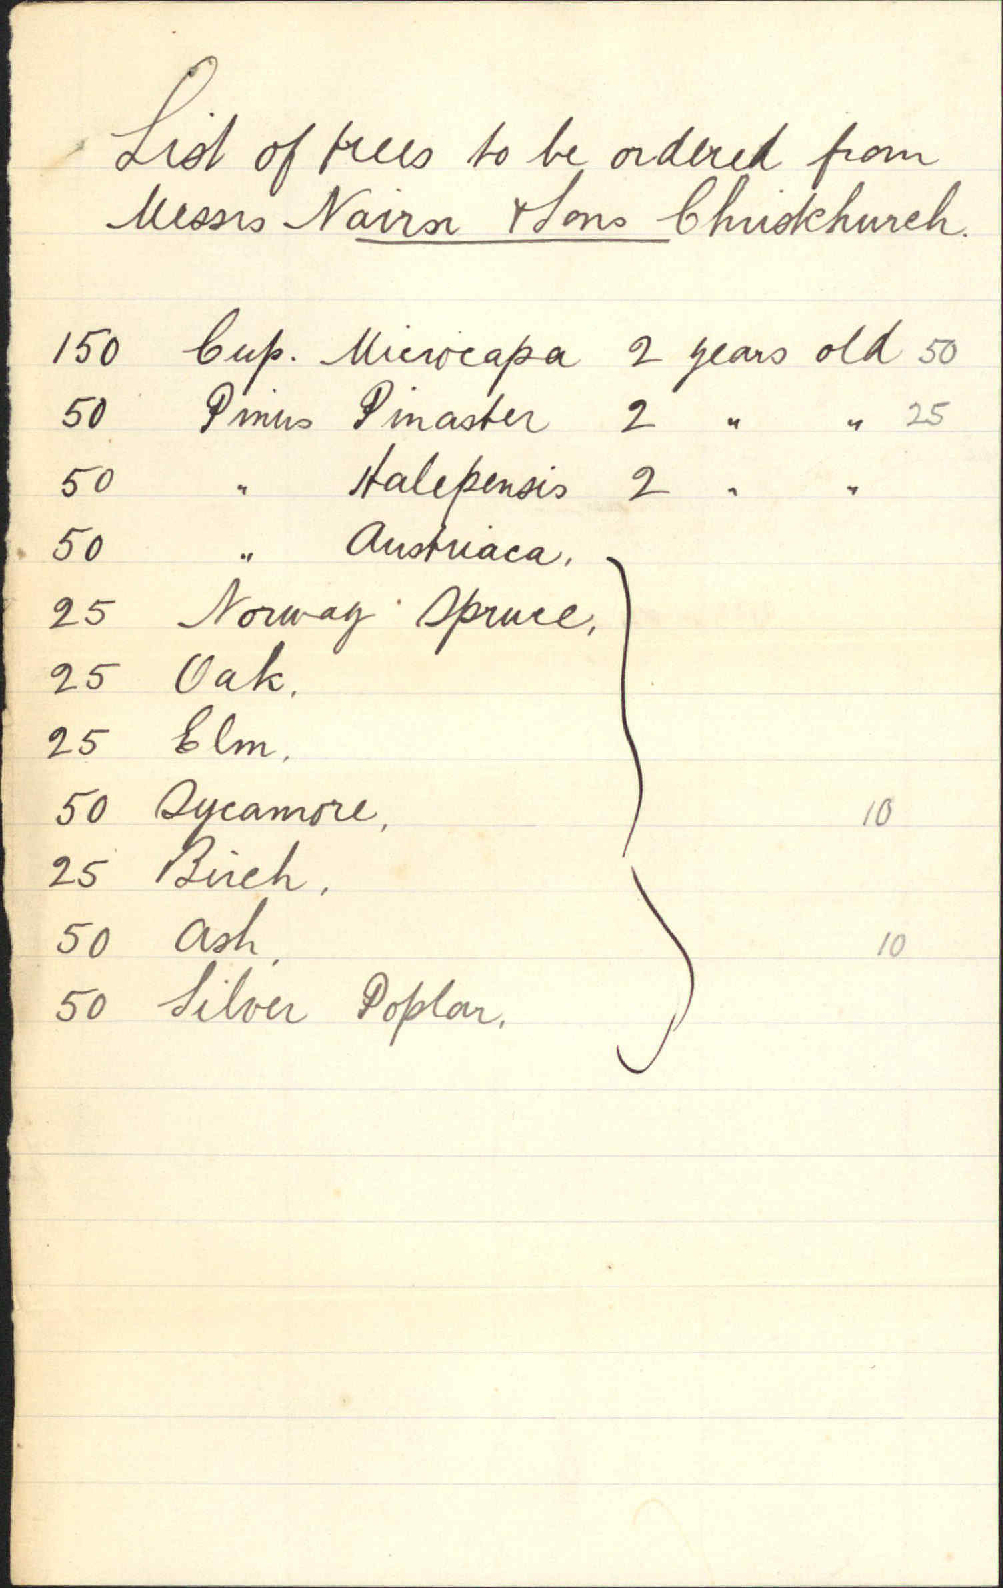 List of trees to be ordered from
Messrs Nairn & Sons Christchurch.
150 Cup. Microcapa 2 years old 50
50 Pinus Pinaster 2 " " 25
50 " Halepensis 2 " "
50 " Austriaca.
25 Norway Spruce.
25 Oak.
25 Elm.
50 Sycamore. 10
25 Birch.
50 Ash. 10
50 Silver Poplar.